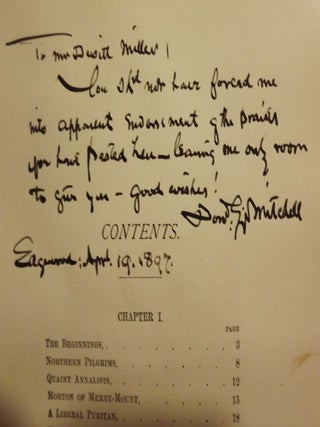 To Mr Dewitt Miller;
You shd not have forced me
into apparent endorsement of the praises
you have pasted here — leaving me only room
to give you — good wishes!
Don: G: Mitchell
CONTENTS.
Edgewood; Apl. 19. 1897.
CHAPTER I.
PAGE
THE BEGINNINGS, . . . . . . . 3
NORTHERN PILGRIMS, . . . . . . . 8
QUAINT ANNALISTS, . . . . . . . 12
MORTON OF MERRY-MOUNT, . . . . . . . 15
A LIBERAL PURITAN, . . . . . . . 18